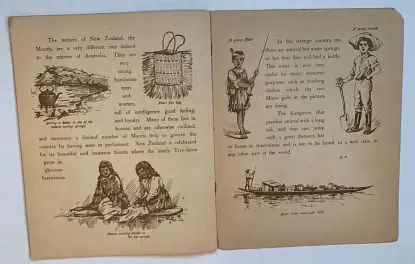 The natives of New Zealand, the
Maoris, are a very different race indeed
to the natives of Australia. They are
very
strong
handsome
men
and
women,
full of intelligence, good feeling,
and loyalty. Many of them live in
houses, and are otherwise civilized,
and moreover a limited number of Maoris help to govern the
country by having seats in parliament. New Zealand is celebrated
for its beautiful and immense forests where the lovely Tree-ferns
grow in
glorious
luxuriance.
Maori flax bag
Boiling a kettle in one of the
natural boiling springs
Maoris washing clothes in
the hot springs
A young Maori
A young colonist
In this strange country too,
there are natural hot water springs
so hot that they will boil a kettle.
This water is also very
useful for many domestic
purposes such as washing
clothes which the two
Maori girls in the picture
are doing.
The Kangaroo, that
peculiar animal with a long
tail, and that can jump
such a great distance, has
its home in Australasia, and is not to be found in a wild state in
any other part of the world.
Maori canoe